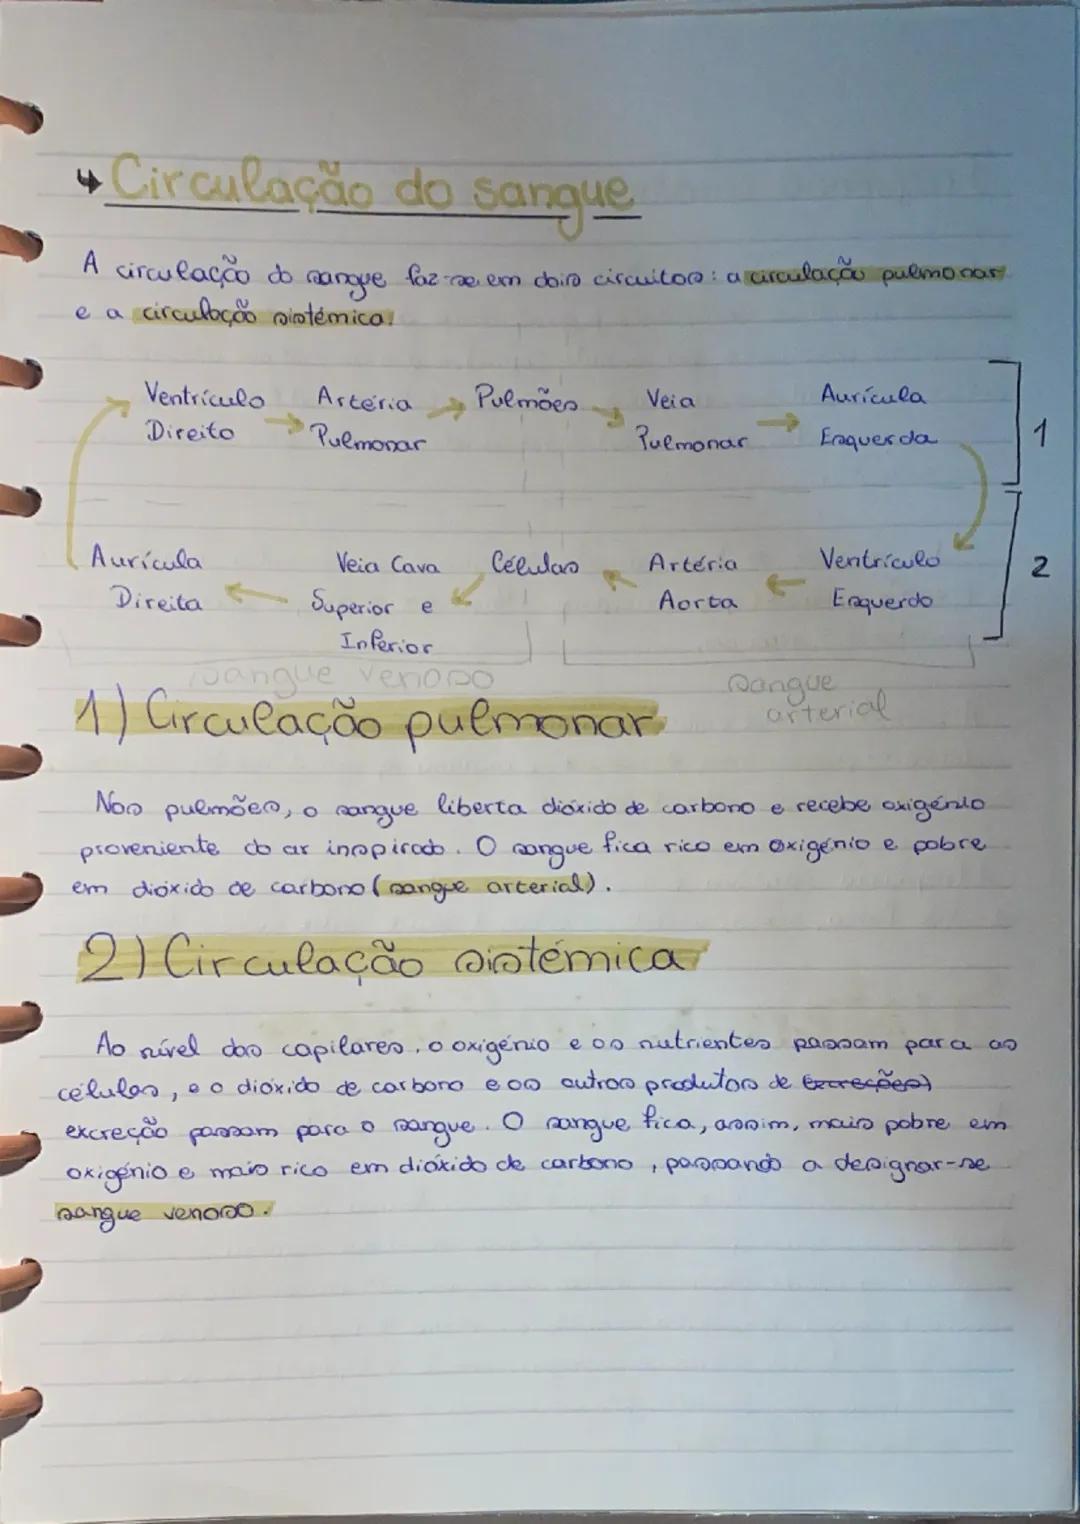 ↳ Circulação do sangue
A circulação do sangue faz-se em dois circuitos: a circulação pulmonar
e a circulação sistémica.
Ventrículo Artéria → Pulmões → Veia Aurícula
Direito → Pulmonar Pulmonar → Esquerda 1
Aurícula Veia Cava Células Artéria Ventrículo
Direita ← Superior e ← Aorta ← Esquerdo 2
Inferior
sangue venoso sangue
arterial
1) Circulação pulmonar
Nos pulmões, o sangue liberta dióxido de carbono e recebe oxigénio
proveniente do ar inspirado. O sangue fica rico em oxigénio e pobre
em dióxido de carbono (sangue arterial).
2) Circulação sistémica
Ao nível dos capilares, o oxigénio e os nutrientes passam para as
células, e o dióxido de carbono e os outros produtos de excreções)
excreção passam para o sangue. O sangue fica, assim, mais pobre em
oxigénio e mais rico em dióxido de carbono, passando a designar-se
sangue venoso.